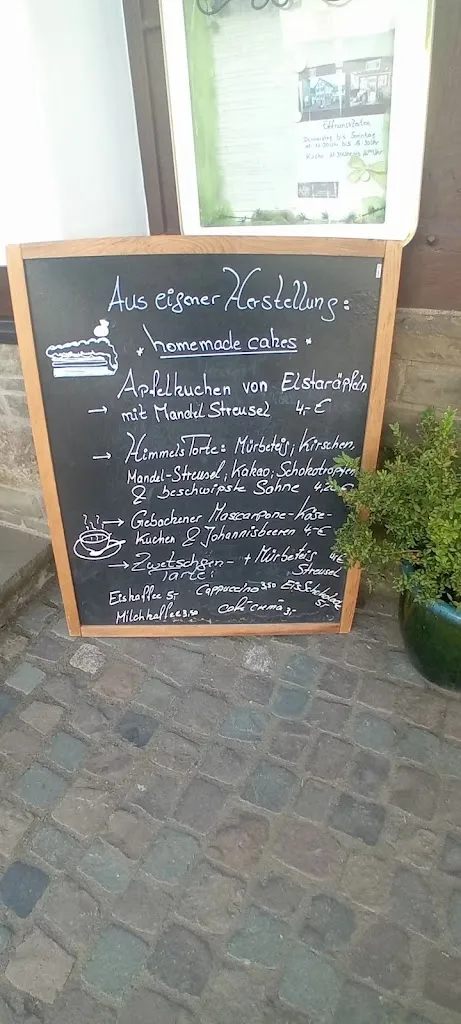 Öffnungszeiten
Donnerstag bis Sonntag
Aus eigener Herstellung:
* homemade cakes *
Apfelkuchen von Elstaräpfeln
→ mit Mandel Streusel 4,-€
→ HimmelsTorte: Mürbeteig, Kirschen,
Mandel-Streusel, Kakao, Schokotropfen
& beschwipste Sahne
→ Gebackener Mascarpone-Käse-
Kuchen & Johannisbeeren 4,-€
→ Zwetschgen- + Mürbeteig 4€
Tarte: Streusel
Eiskaffee 5,- Cappuccino 3,50 EisSchokolade
Milchkaffee 3,50 Café crema 3,- 5,-